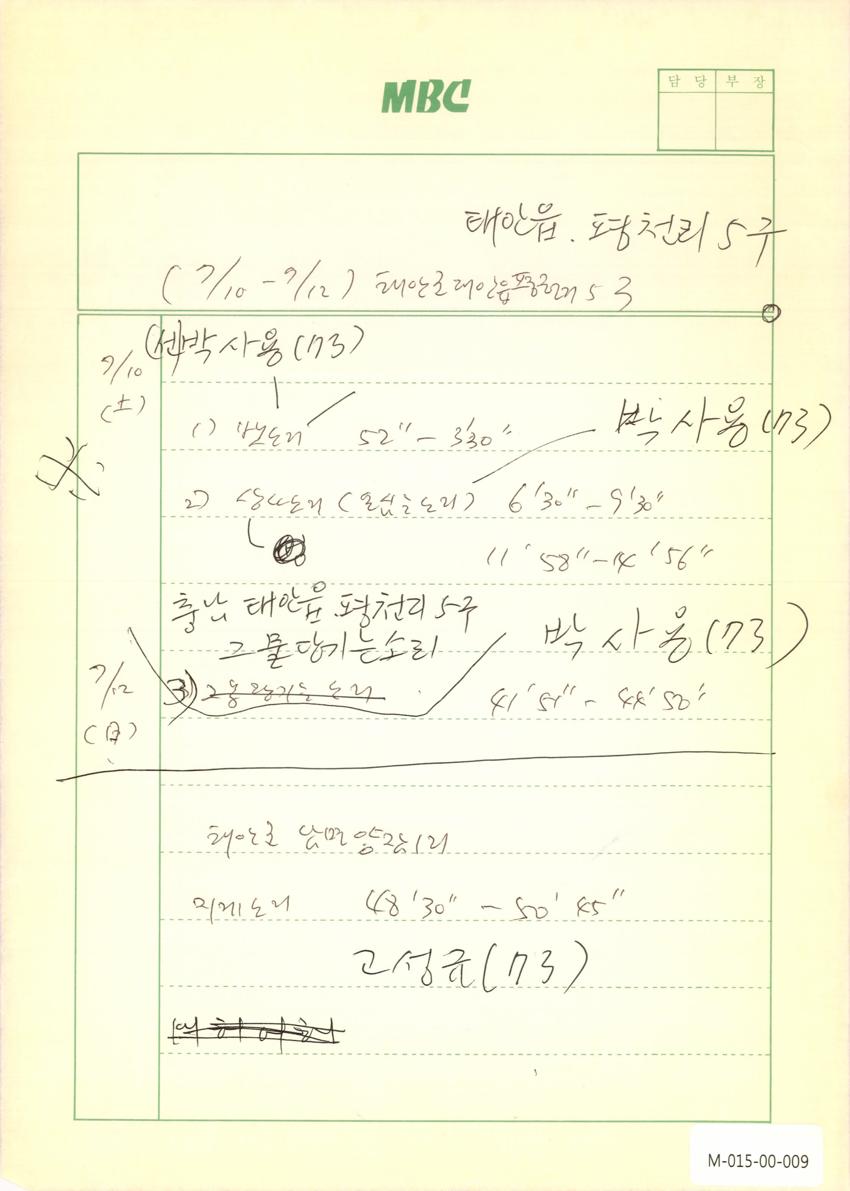 MBC
담 당 부 장
태안읍. 평천리 5구
(7/10 - 7/12) 태안군태안읍평천리 5구
7/10
(土)
(선)박사용(73)
1) 52" - 3'30"
박사용(73)
2) 상사소리 (모심는소리) 6'30" - 9'30"
11'58" - 14'56"
충남 태안읍.평천리 5구
그물당기는소리
박사용(73)
7/12
(日)
3) 그물당기는소리 41'51" - 44'50"
태안군 남면양잠1리
지게소리 48'30" - 50'45"
고성규(73)
M-015-00-009